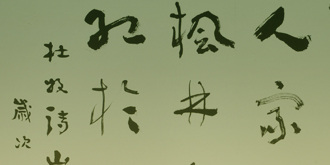 人家
楓林
紅於
杜牧詩山
歲次